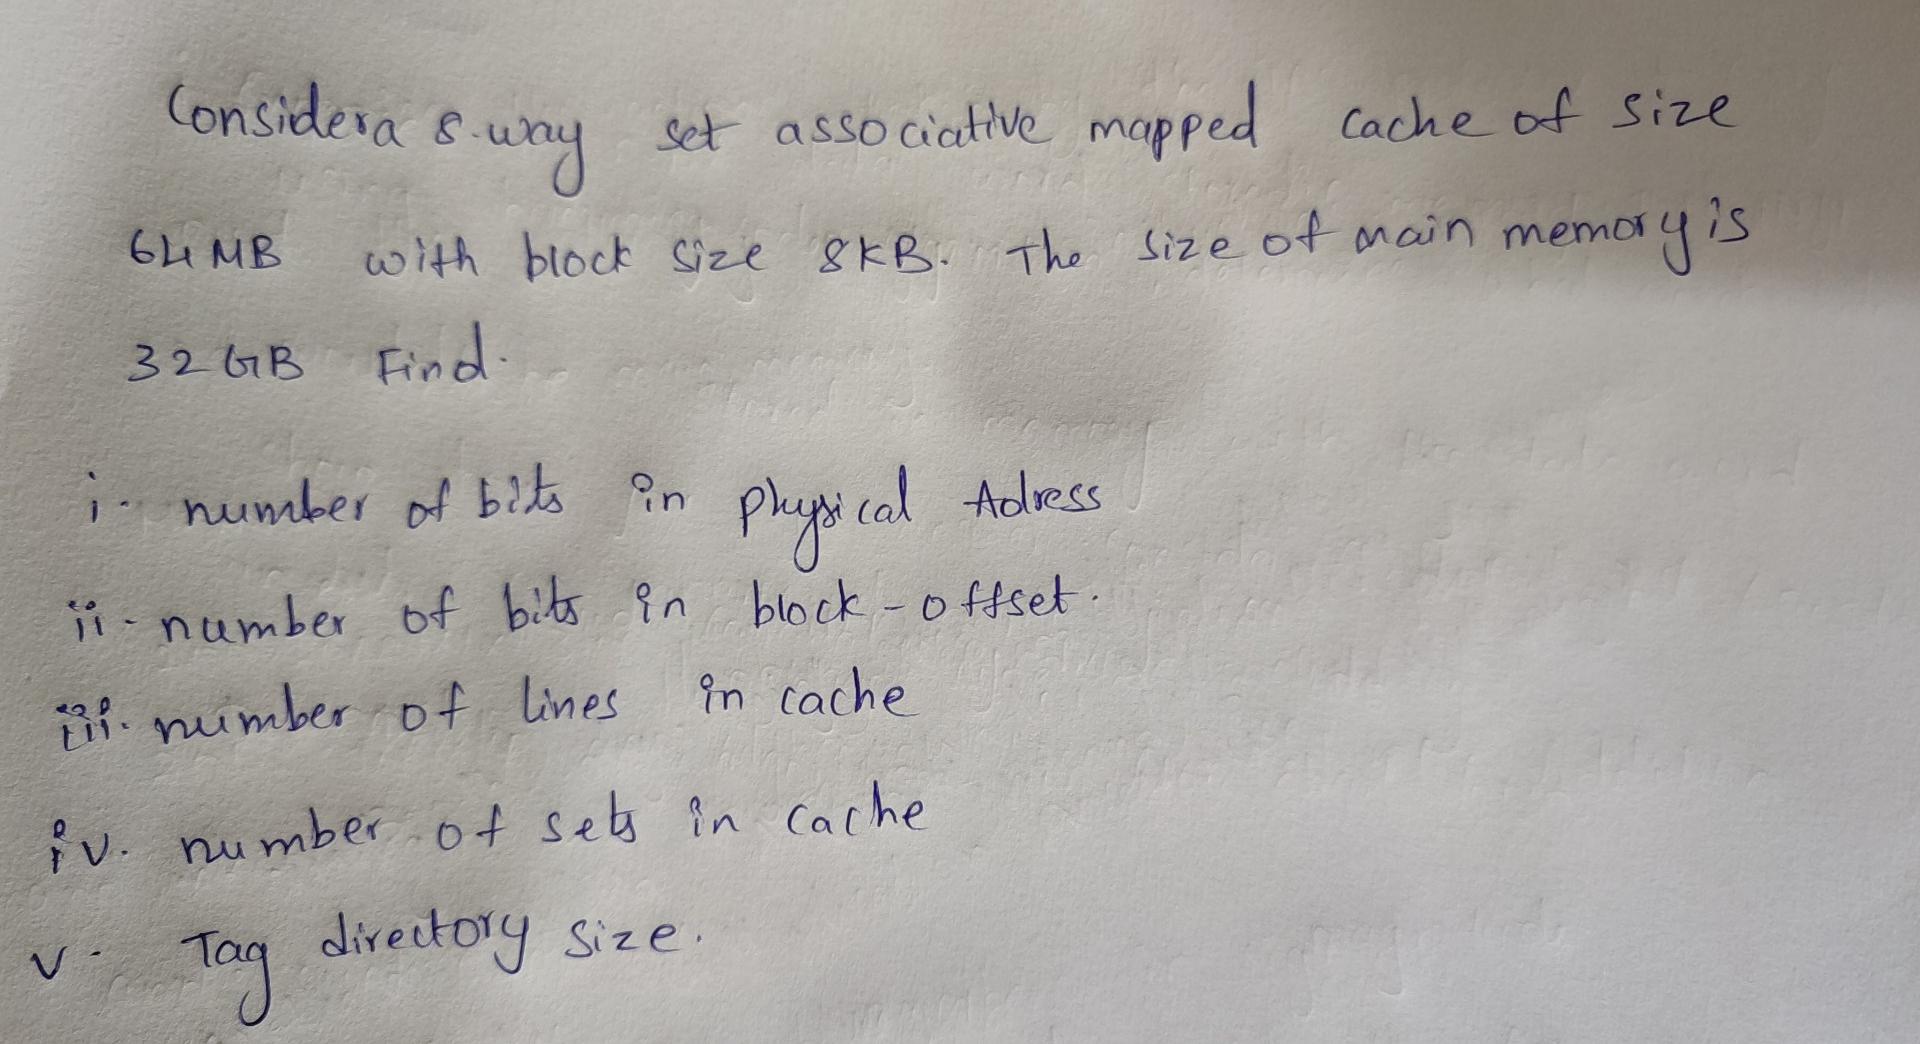 Consider a 8-way set associative mapped cache of size
64 MB with block size 8KB. The size of main memory is
32 GB Find.
i. number of bits in physical Adress
ii- number of bits in block-offset.
iii. number of lines in cache
iv. number of sets in cache
v. Tag directory size.